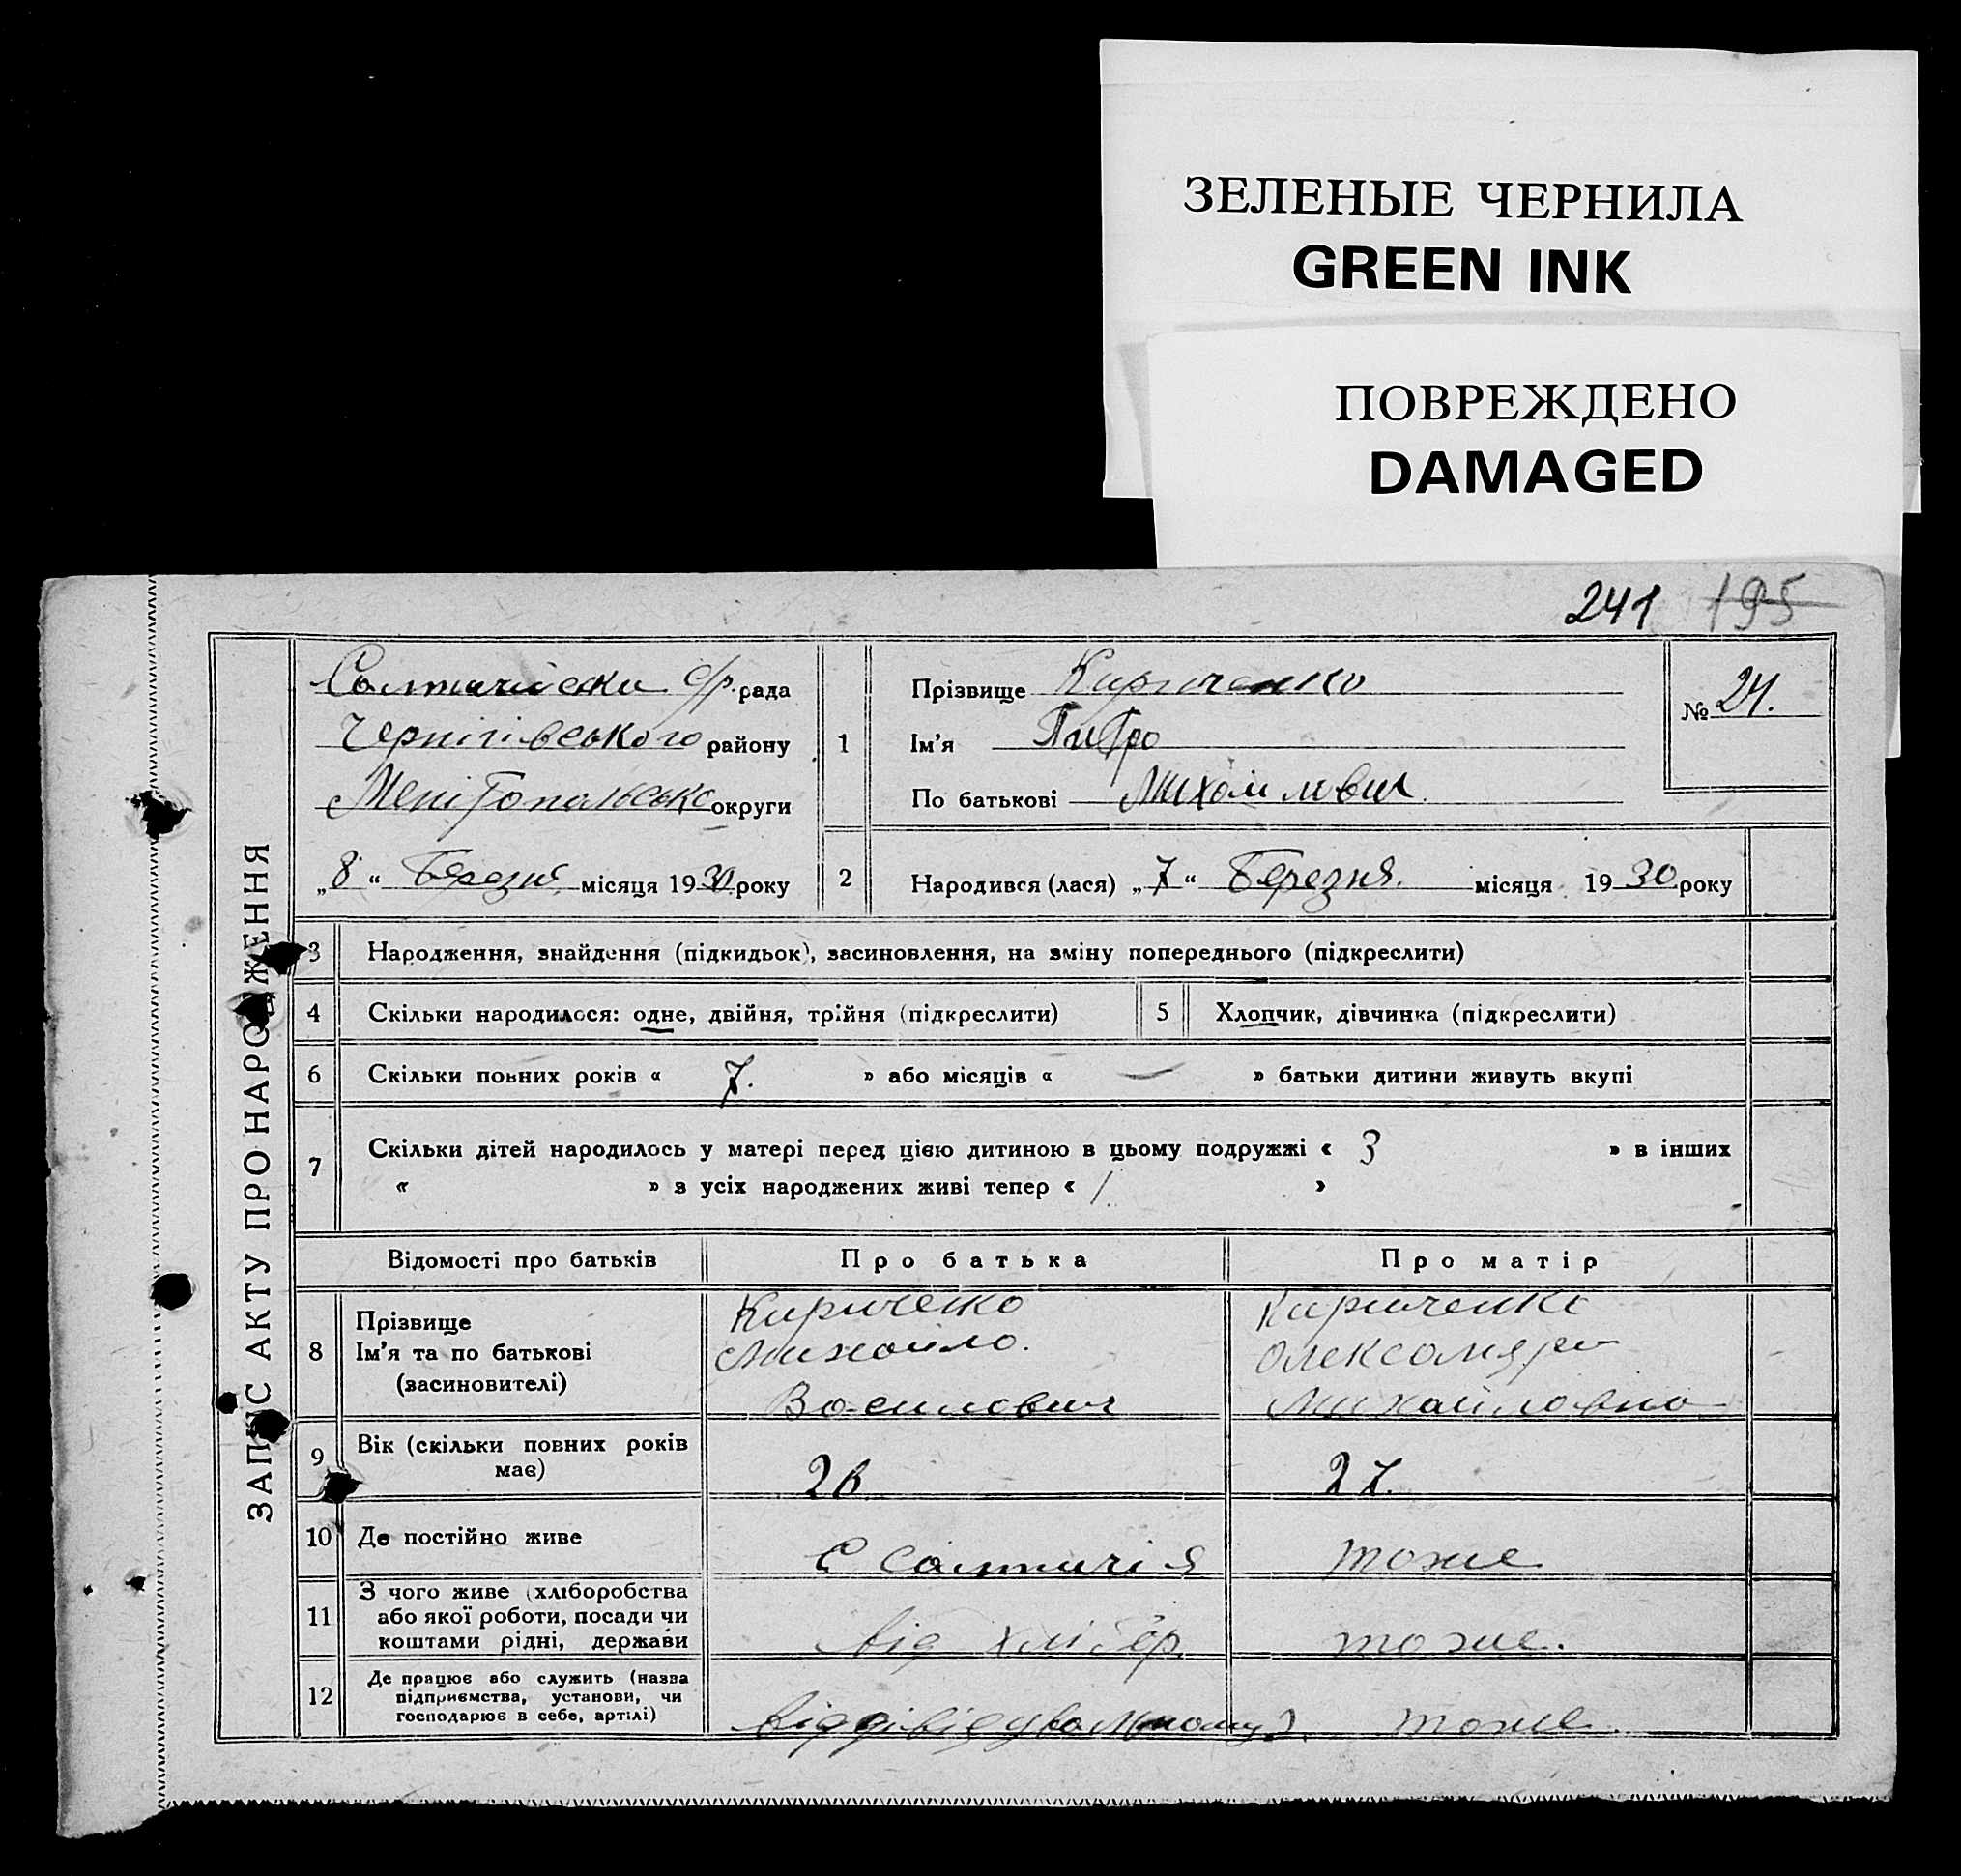 ЗЕЛЕНЫЕ ЧЕРНИЛА
GREEN INK
ПОВРЕЖДЕНО
DAMAGED
241 195
ЗАПИС АКТУ ПРО НАРОДЖЕННЯ
с/р. рада
Чернігівського району
округи
„8“ Березня місяця 1930 року
1 Прізвище Кириченко
Ім’я Питро
По батькові Михайлович
№ 24.
2 Народився (лася) „7“ Березня. місяця 1930 року
3 Народження, знайдення (підкидьок), засиновлення, на зміну попереднього (підкреслити)
4 Скільки народилося: одне, двійня, трійня (підкреслити) 5 Хлопчик, дівчинка (підкреслити)
6 Скільки повних років « 7. » або місяців « — » батьки дитини живуть вкупі
7 Скільки дітей народилось у матері перед цією дитиною в цьому подружжі « 3 » в інших
« » з усіх народжених живі тепер « 1 »
Відомості про батьків Про батька Про матір
8 Прізвище Кириченко Кириченко
Ім’я та по батькові Михайло. Олександра
(засиновителі) Василович Михайловна
9 Вік (скільки повних років
має) 26 27.
10 Де постійно живе С Салтичія тоже
11 З чого живе (хліборобства
або якої роботи, посади чи
коштами рідні, держави від хлібор. тоже.
12 Де працює або служить (назва
підприємства, установи, чи
господарює в себе, артілі) тоже.